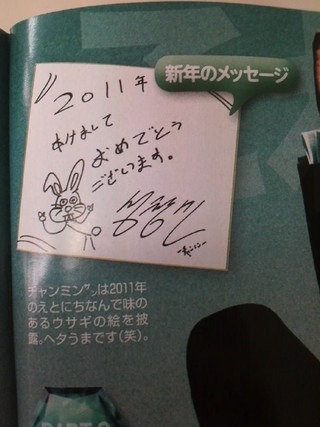 新年のメッセージ
2011年
あけまして
おめでとう
ございます。
チャンミンは2011年
のえとにちなんで味の
あるウサギの絵を披
露。ヘタうまです(笑)。